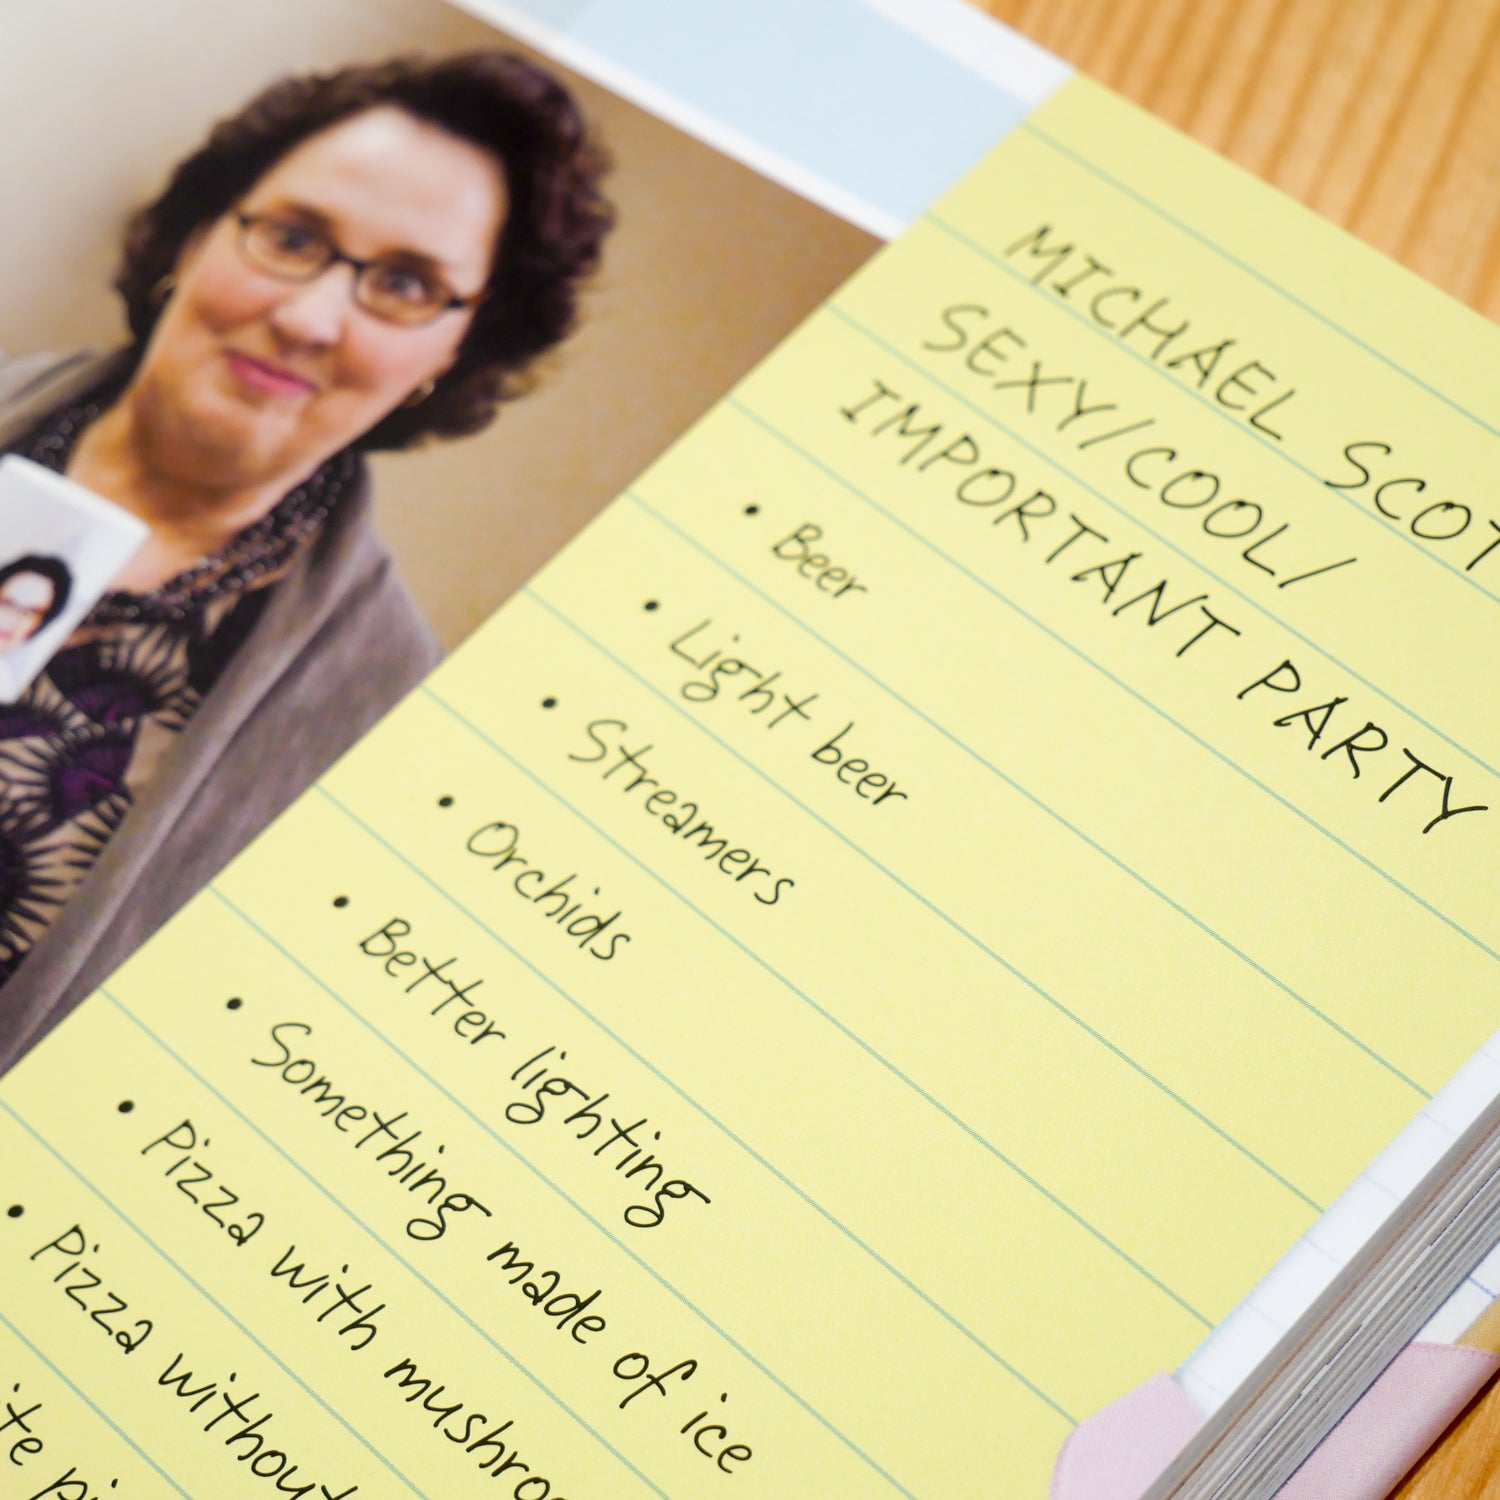 MICHAEL
SEXY/COOL/
IMPORTANT PARTY
• Beer
• Light beer
• Streamers
• Orchids
• Better lighting
• Something made of ice
• Pizza with
• Pizza without